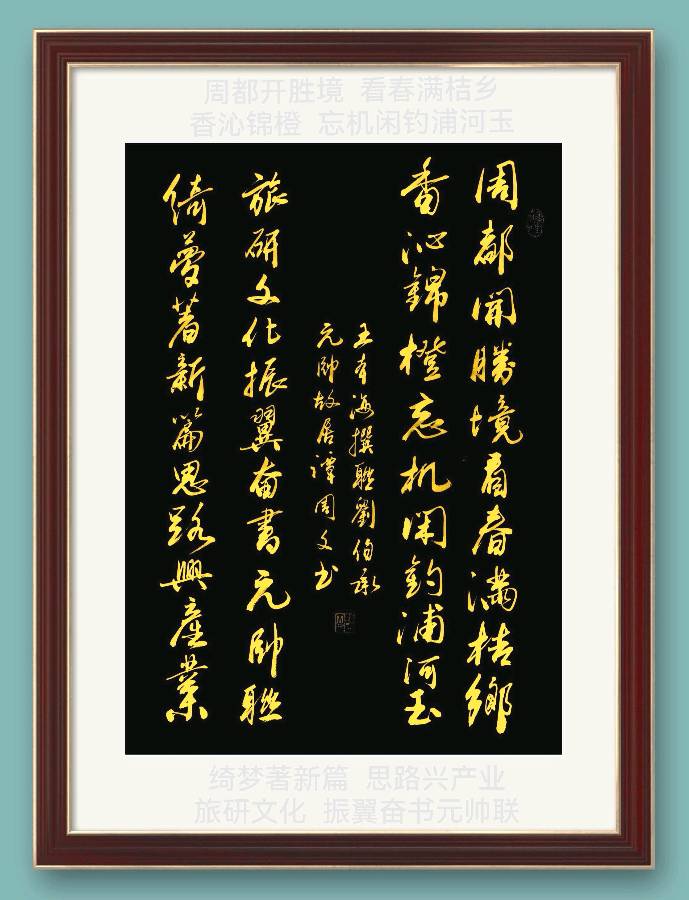 周都开胜境 看春满桔乡
香沁锦橙 忘机闲钓浦河玉
周都開勝境看春滿桔鄉
香沁錦橙忘机闲釣浦河玉
王本海撰联劉伯承
元帅故居谭周文书
旅研文化振翼奋書元帅联
绮夢著新篇思路興産業
绮梦著新篇 思路兴产业
旅研文化 振翼奋书元帅联